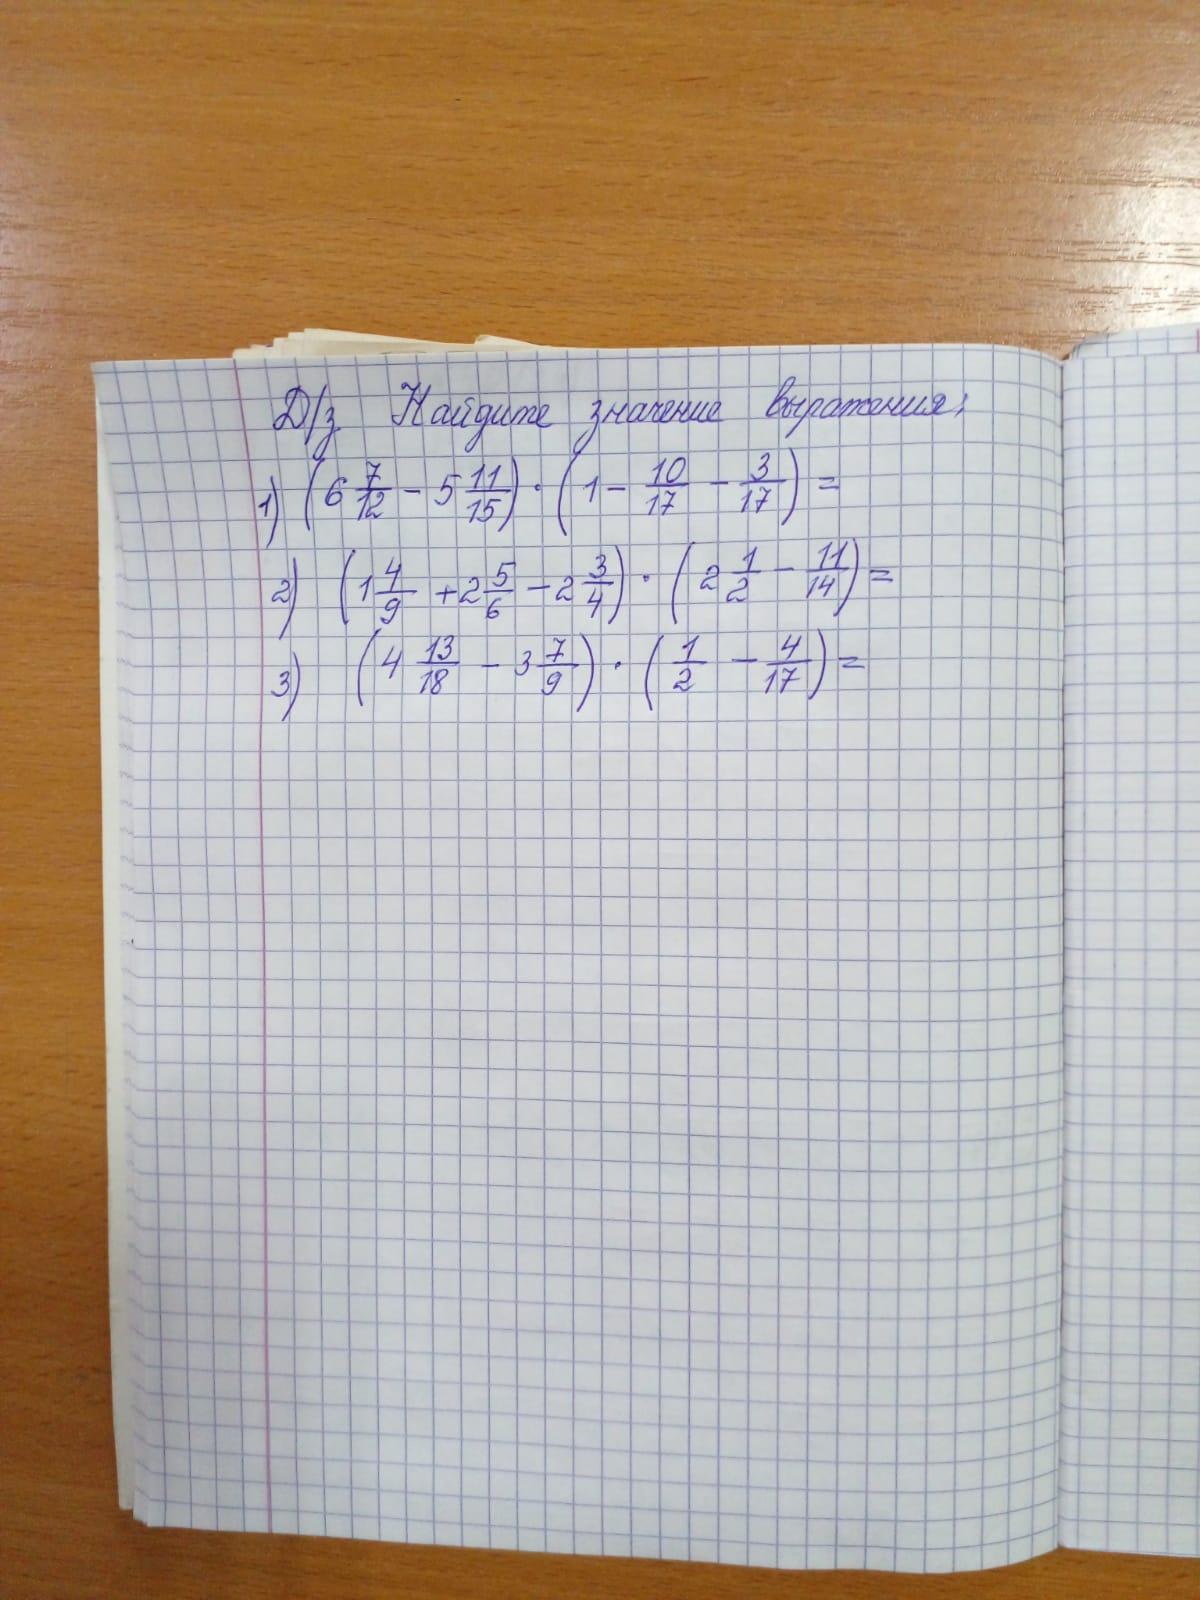 Д/з Найдите значение выражения:
1) (6 7/12 - 5 11/15) · (1 - 10/17 - 3/17) =
2) (1 4/9 + 2 5/6 - 2 3/4) · (2 1/2 - 11/14) =
3) (4 13/18 - 3 7/9) · (1/2 - 4/17) =